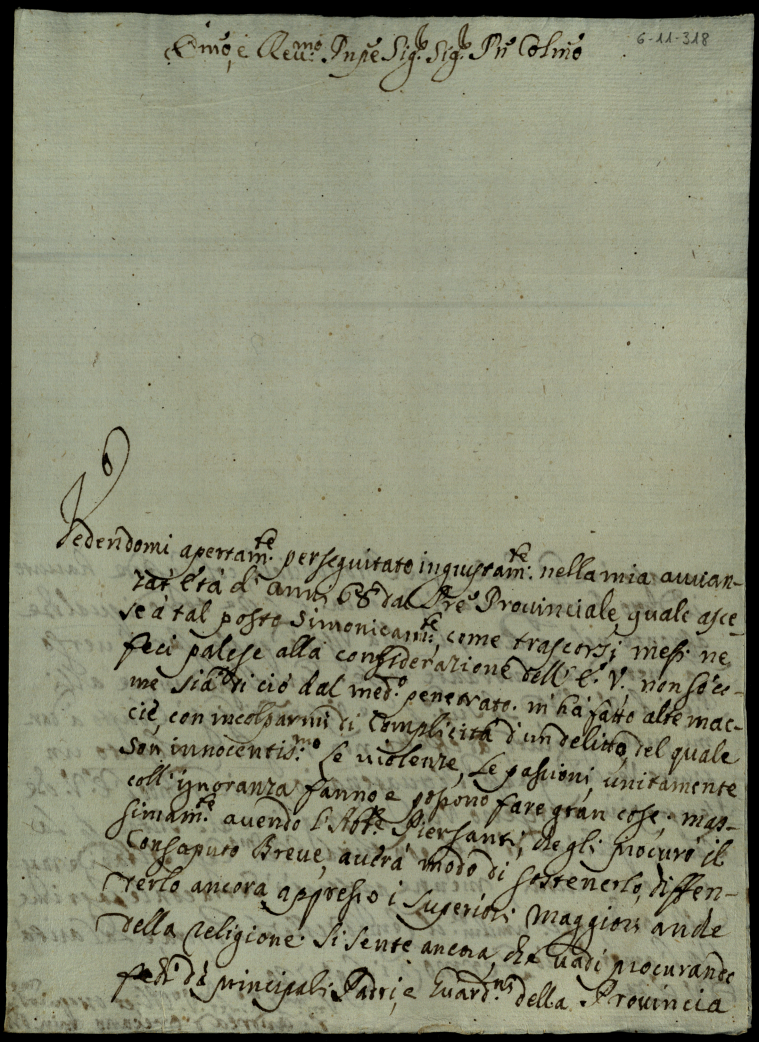 6-11-318
Emo, e Reumo Pnpe Sigr. Sigr. Pñ Colmo
Vedendomi apertamte. perseguitato ingiustamte. nella mia auuan-
zat' età di anni 68 dal Pre Prouinciale, quale asce-
se à tal posto Simonicamte, come trascorsi mesi ne
feci palese alla considerazione dell' E. V. non sò co-
me sia di ciò dal medo. penetrato. m' hà fatto alte mac-
cie, con incolparmi di Complicità d' un delitto, del quale
son innocentismo. Le uiolenze, Le passioni, unitamente
coll' ignoranza fanno e possono fare gran cose, mas-
simamte. auendo l' Abte. Piersanti, che gli procurò il
Consaputo Breue, aurà modo di sostenerlo, diffen-
derlo ancora appresso i Superiori Maggiori anche
della religione. Si sente ancora, che uadi procurando
fedi dà principali Padri, e Guardni. della Prouincia